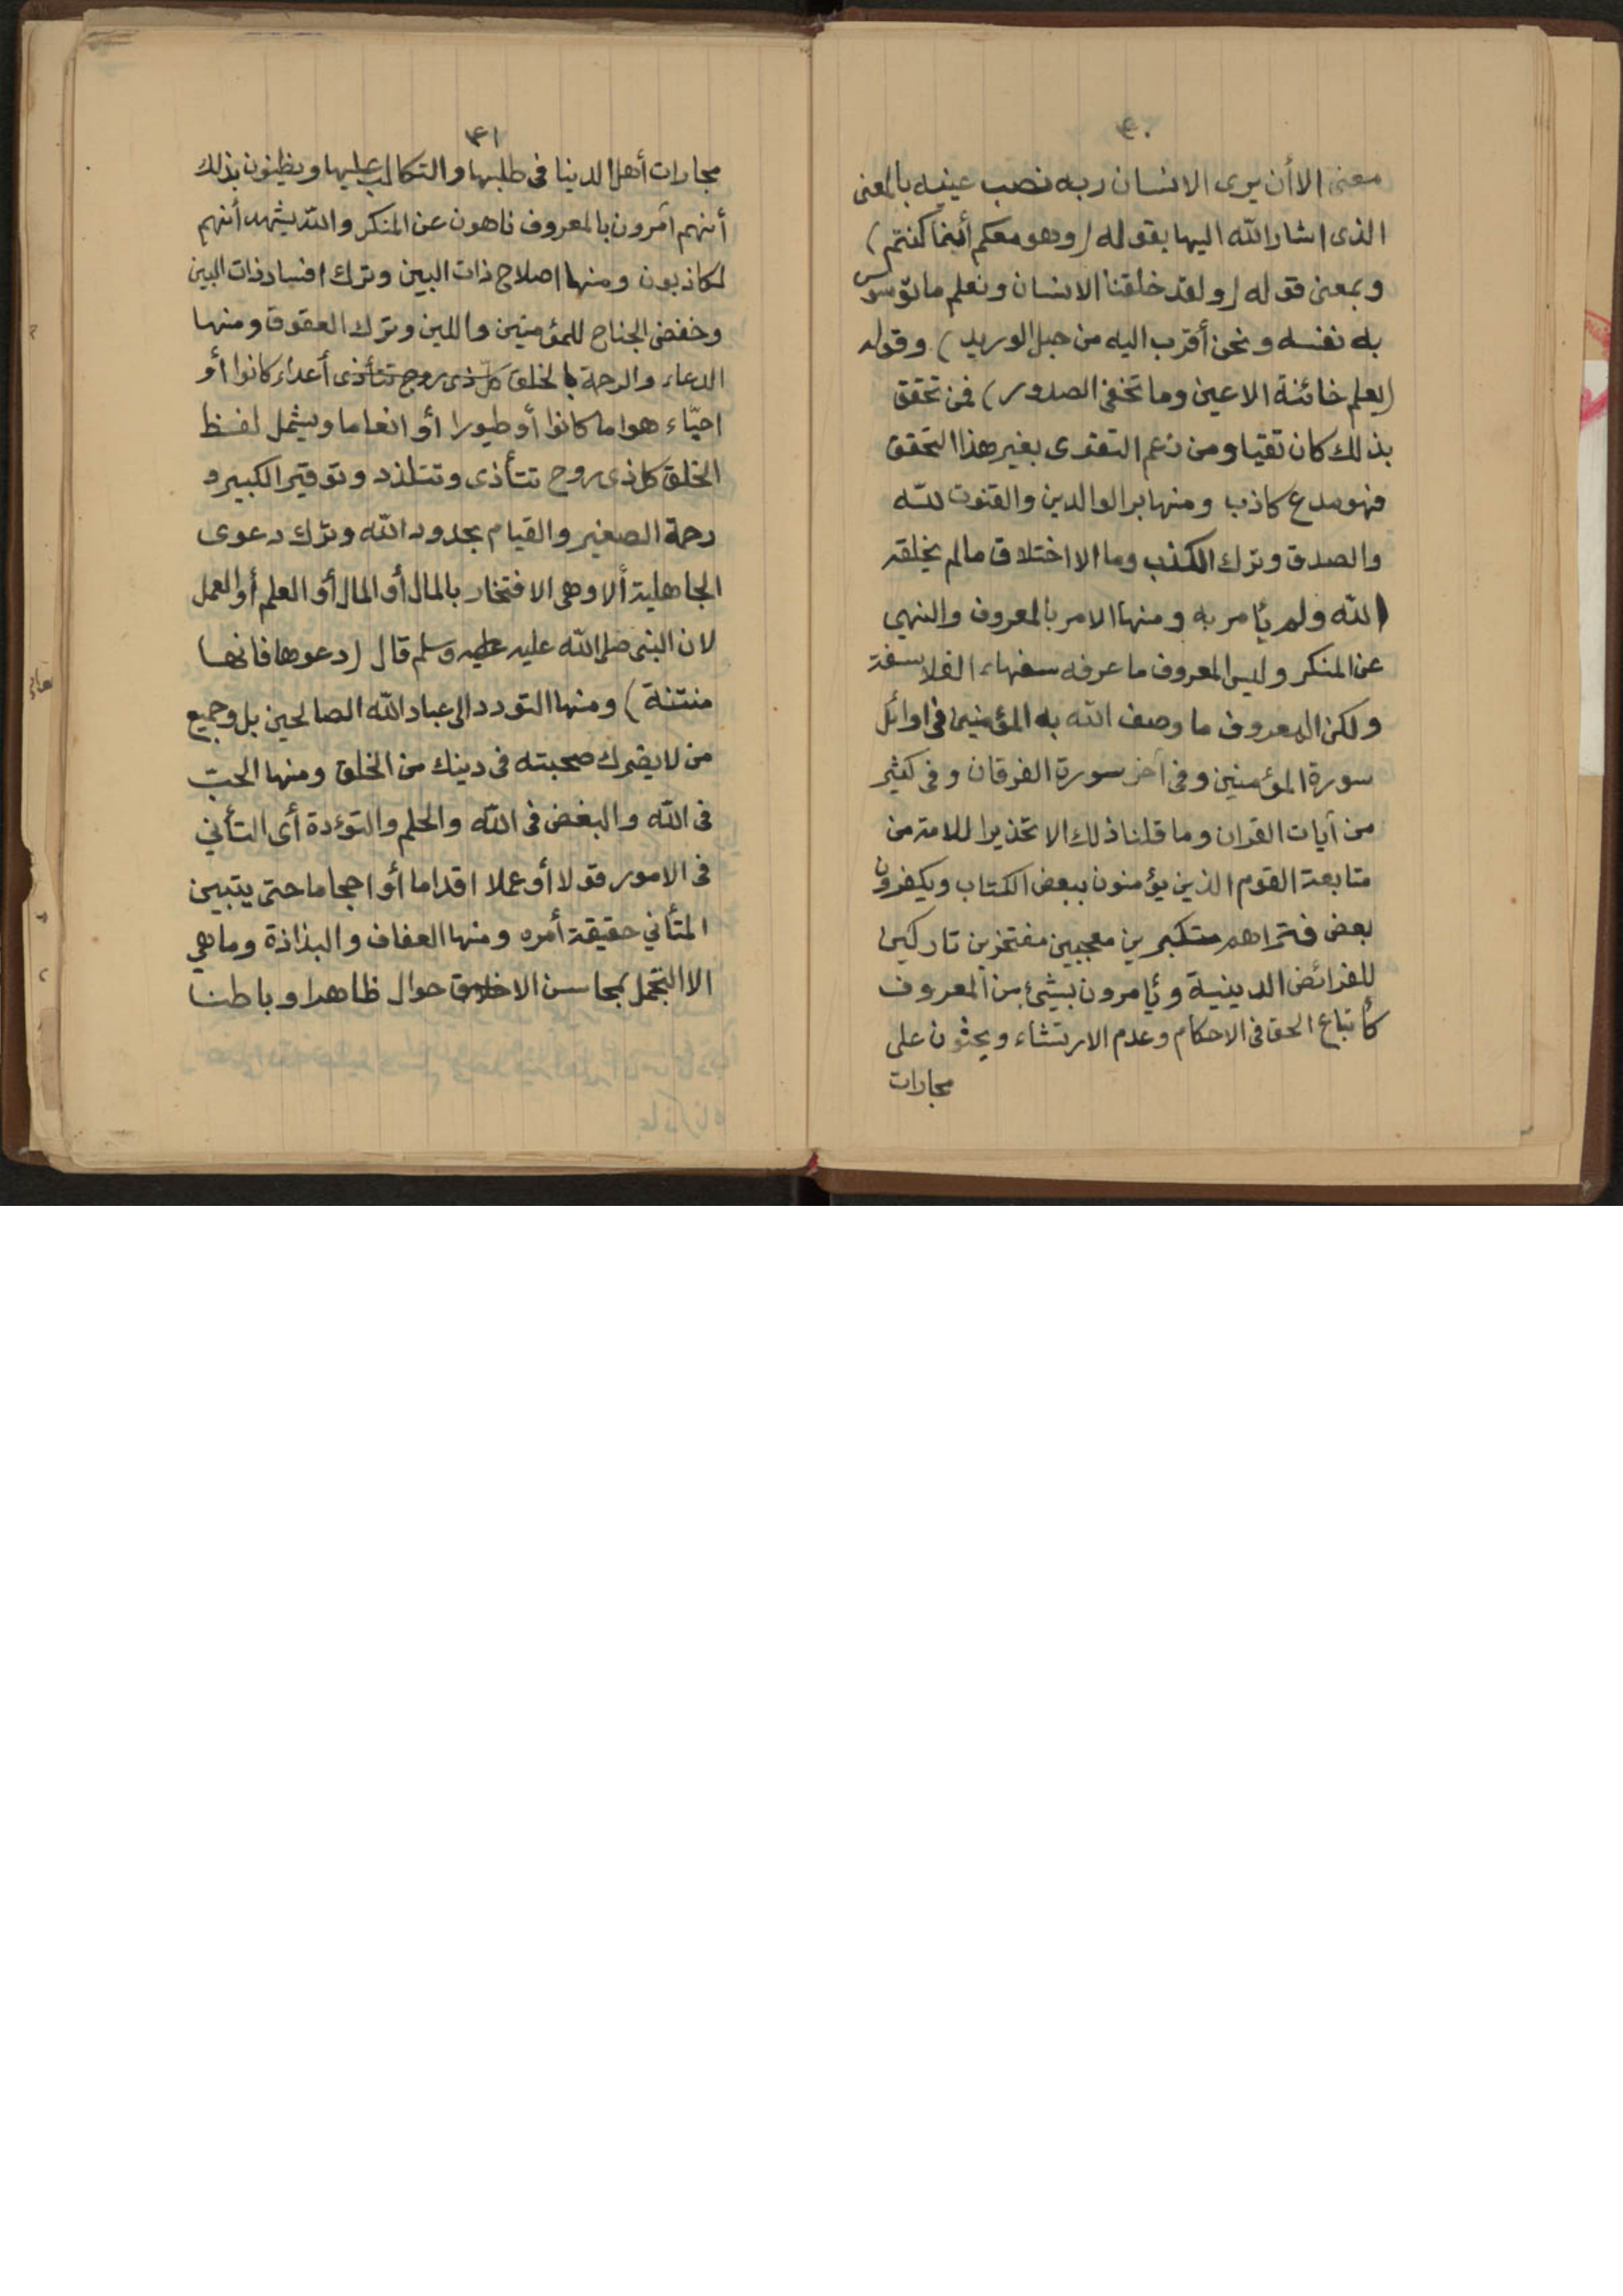 ٤٠
معنى الا أن يرى الانسان ربه نصب عينيه بالمعنى
الذى اشار الله اليها بقوله (وهو معكم أينما كنتم)
وبمعنى قوله (ولقد خلقنا الانسان ونعلم ما توسوس
به نفسه ونحن أقرب اليه من حبل الوريد) وقوله
(يعلم خائنة الاعين وما تخفى الصدور) فمن تحقق
بذلك كان تقيا ومن زعم التقوى بغير هذا التحقق
فهو مدع كاذب ومنها بر الوالدين والقنوت لله
والصدق وترك الكذب وما الا اختلاق مالم يخلقه
الله ولم يأمر به ومنها الامر بالمعروف والنهي
عن المنكر وليس المعروف ما عرفه سفهاء الفلاسفة
ولكن المعروف ما وصف الله به المؤمنين فى اوائل
سورة المؤمنين وفى آخر سورة الفرقان وفى كثير
من آيات القران وما قلنا ذلك الا تحذيرا للامة من
متابعة القوم الذين يؤمنون ببعض الكتاب ويكفرون
بعض فتراهم متكبرين معجبين مفتخرين تاركين
للفرائض الدينية ويأمرون بشيئ من المعروف
كأتباع الحق فى الاحكام وعدم الارتشاء ويحثون على
مجارات
٤١
مجارات أهل الدينا فى طلبها والتكالب عليها ويظنون بذلك
أنهم آمرون بالمعروف ناهون عن المنكر والله يشهد أنهم
لكاذبون ومنها اصلاح ذات البين وترك افساد ذات البين
وخفض الجناح للمؤمنين واللين وترك العقوق ومنها
الدعاء والرحة بالخلق كل ذى روح تتأذى أعداء كانوا أو
احبّاء هواما كانوا أو طيورا أو انعاما ويشمل لفظ
الخلق كل ذى روح تتأذى وتتلذد وتوقير الكبير و
رحمة الصغير والقيام بحدود الله وترك دعوى
الجاهلية ألا وهى الافتخار بالمال أو المال أو العلم أو العمل
لان النبى صلى الله عليه عليه وسلم قال (دعوها فانها
منتنة) ومنها التودد الى عباد الله الصالحين بل وجميع
من لا يضرك صحبته فى دينك من الخلق ومنها الحبّ
فى الله والبغض فى الله والحلم والتوءدة أى التأني
فى الامور قولا أو عملا اقداما أو احجاما حتى يتبين
المتأني حقيقة أمره ومنها العفاف والبذاذة وما هي
الا التجمل بمحاسن الاخلاق حوال ظاهرا وباطنا